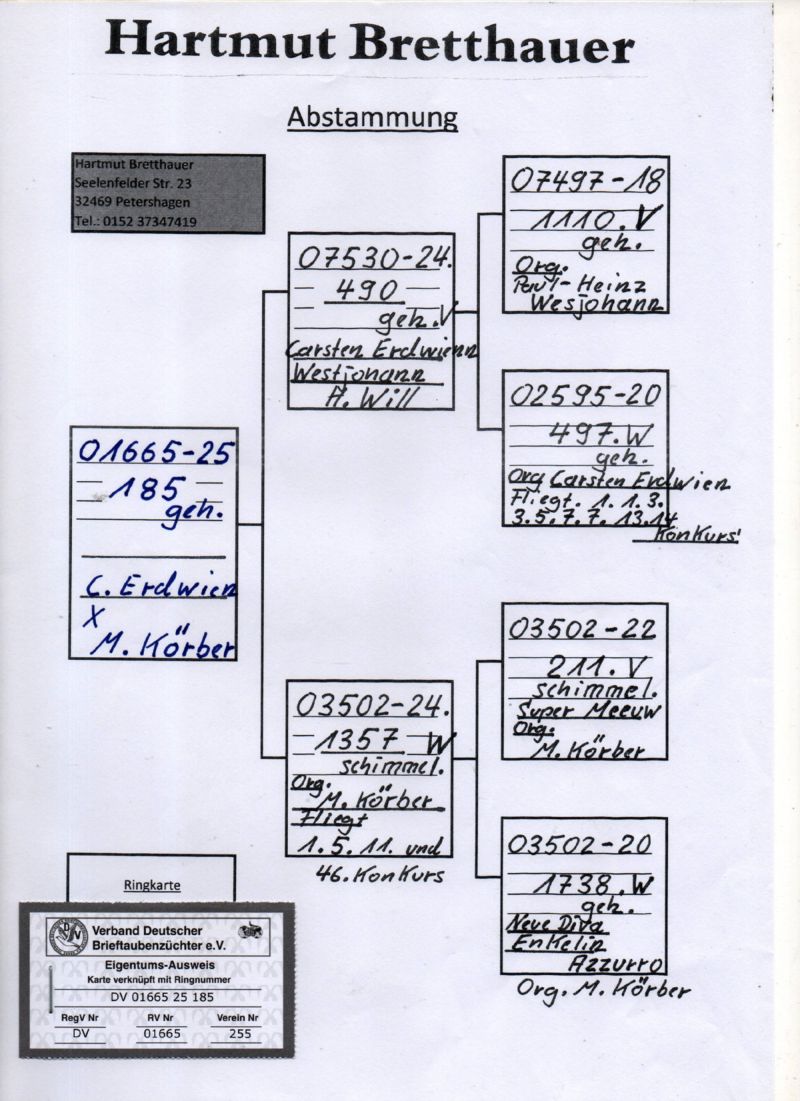 Hartmut Bretthauer
Abstammung
Hartmut Bretthauer
Seelenfelder Str. 23
32469 Petershagen
Tel.: 0152 37347419
07497-18
1110. V
geh.
Org.
Paul-Heinz
Wesjohann
07530-24.
490
geh. V
Carsten Erdwienn
Westjohann
H. Will
02595-20
497. W
geh.
Org Carsten Erdwien
Fliegt. 1. 1. 3.
3. 5. 7. 7. 13. 14
Konkurs'
01665-25
185
geh.
C. Erdwien
X
M. Körber
03502-22
211. V
schimmel.
Super Meeuw
Org.
M. Körber
03502-24.
1357 W
schimmel.
Org.
M. Körber
Fliegt
1. 5. 11. und
46. Konkurs
03502-20
1738. W
geh.
Neue Diva
Enkelin
Azzurro
Org. M. Körber
Ringkarte
Verband Deutscher
Brieftaubenzüchter e.V.
Eigentums-Ausweis
Karte verknüpft mit Ringnummer
DV 01665 25 185
RegV Nr RV Nr Verein Nr
DV 01665 255